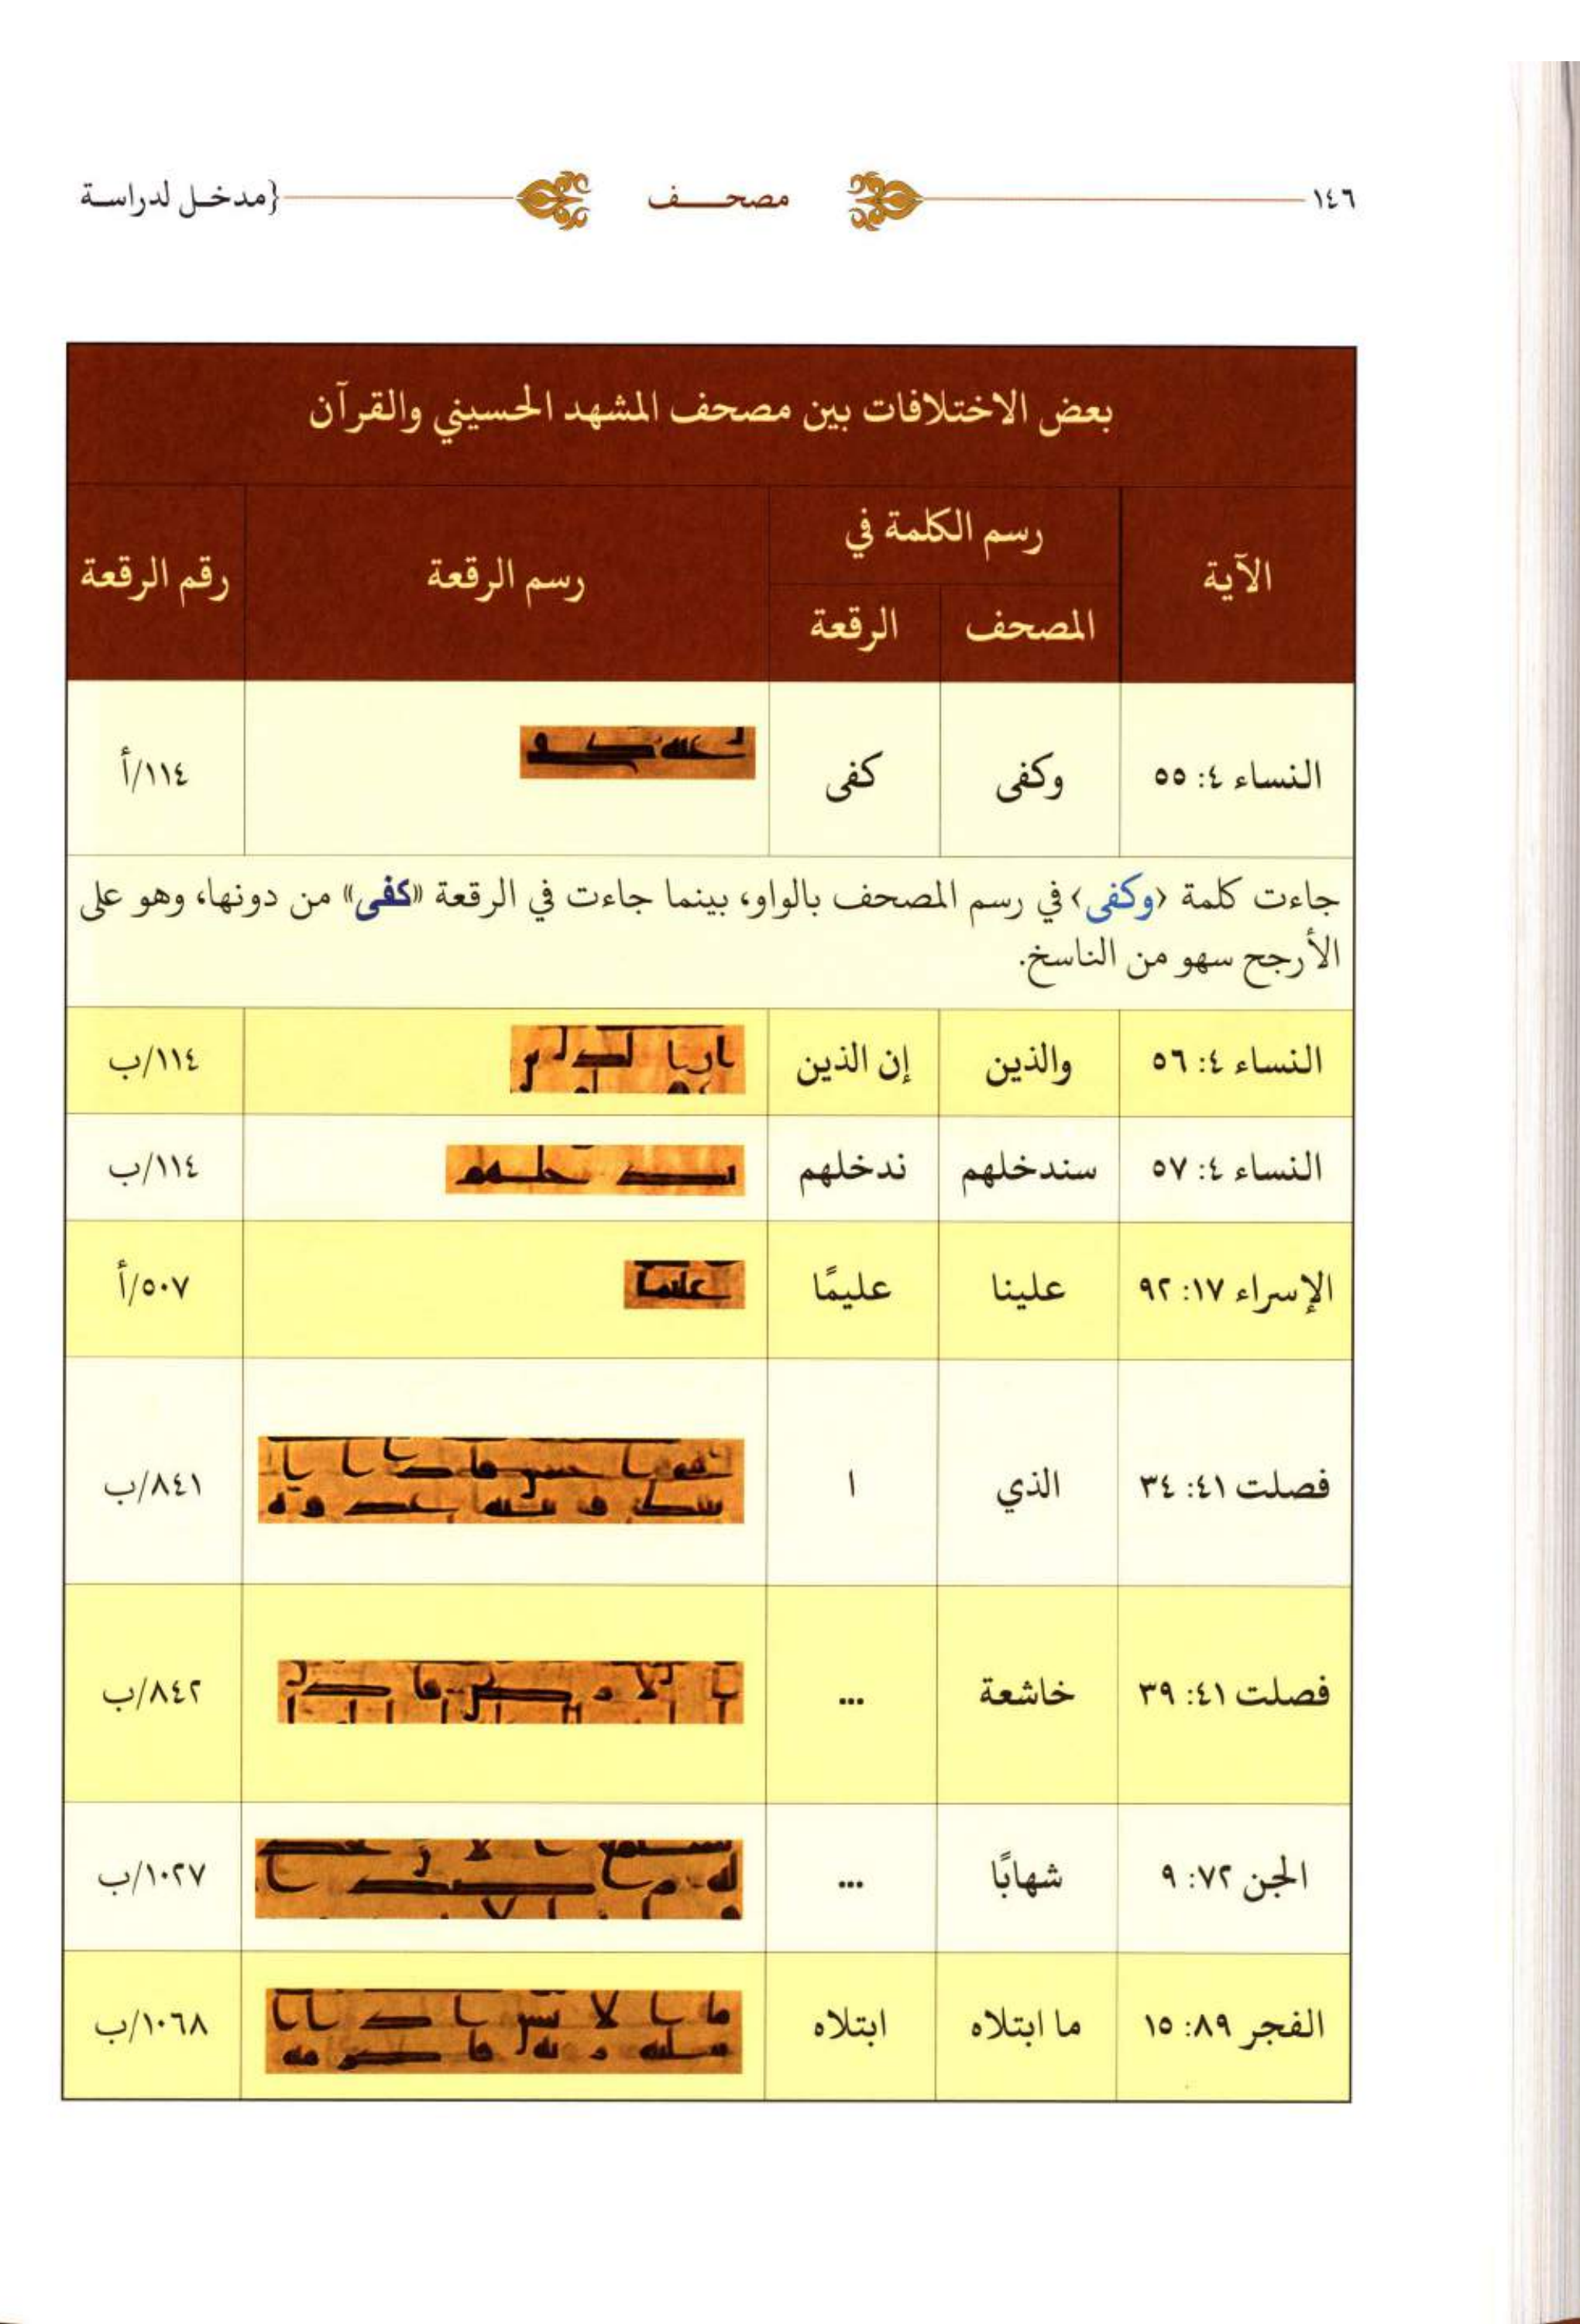 ١٤٦ مصحـــف {مدخـل لدراسـة
بعض الاختلافات بين مصحف المشهد الحسيني والقرآن
الآية رسم الكلمة في رسم الرقعة رقم الرقعة
المصحف الرقعة
النساء ٤: ٥٥ وكفى كفى ١١٤/أ
جاءت كلمة ﴿وكفى﴾ في رسم المصحف بالواو، بينما جاءت في الرقعة «كفى» من دونها، وهو على
الأرجح سهو من الناسخ.
النساء ٤: ٥٦ والذين إن الذين ١١٤/ب
النساء ٤: ٥٧ سندخلهم ندخلهم ١١٤/ب
الإسراء ١٧: ٩٢ علينا عليمًا ٥٠٧/أ
فصلت ٤١: ٣٤ الذي ا ٨٤١/ب
فصلت ٤١: ٣٩ خاشعة ... ٨٤٢/ب
الجن ٧٢: ٩ شهابًا ... ١٠٢٧/ب
الفجر ٨٩: ١٥ ما ابتلاه ابتلاه ١٠٦٨/ب